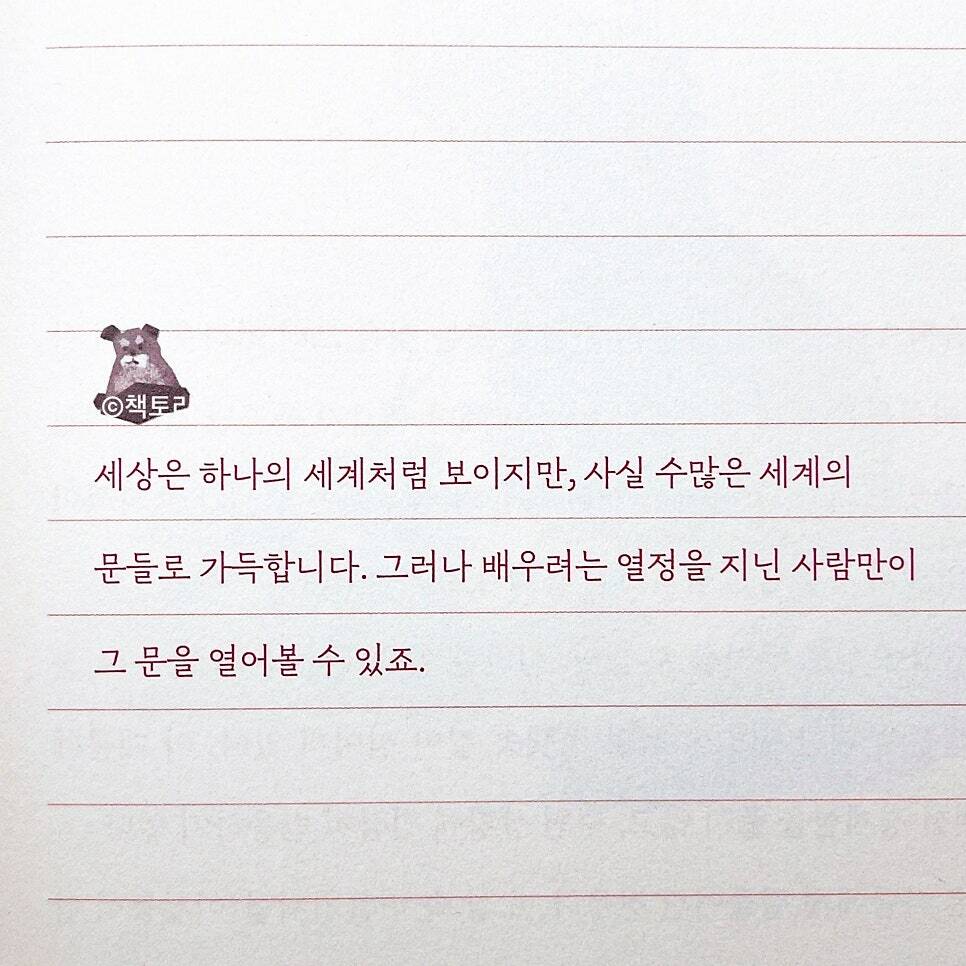 ©책토리
세상은 하나의 세계처럼 보이지만, 사실 수많은 세계의
문들로 가득합니다. 그러나 배우려는 열정을 지닌 사람만이
그 문을 열어볼 수 있죠.